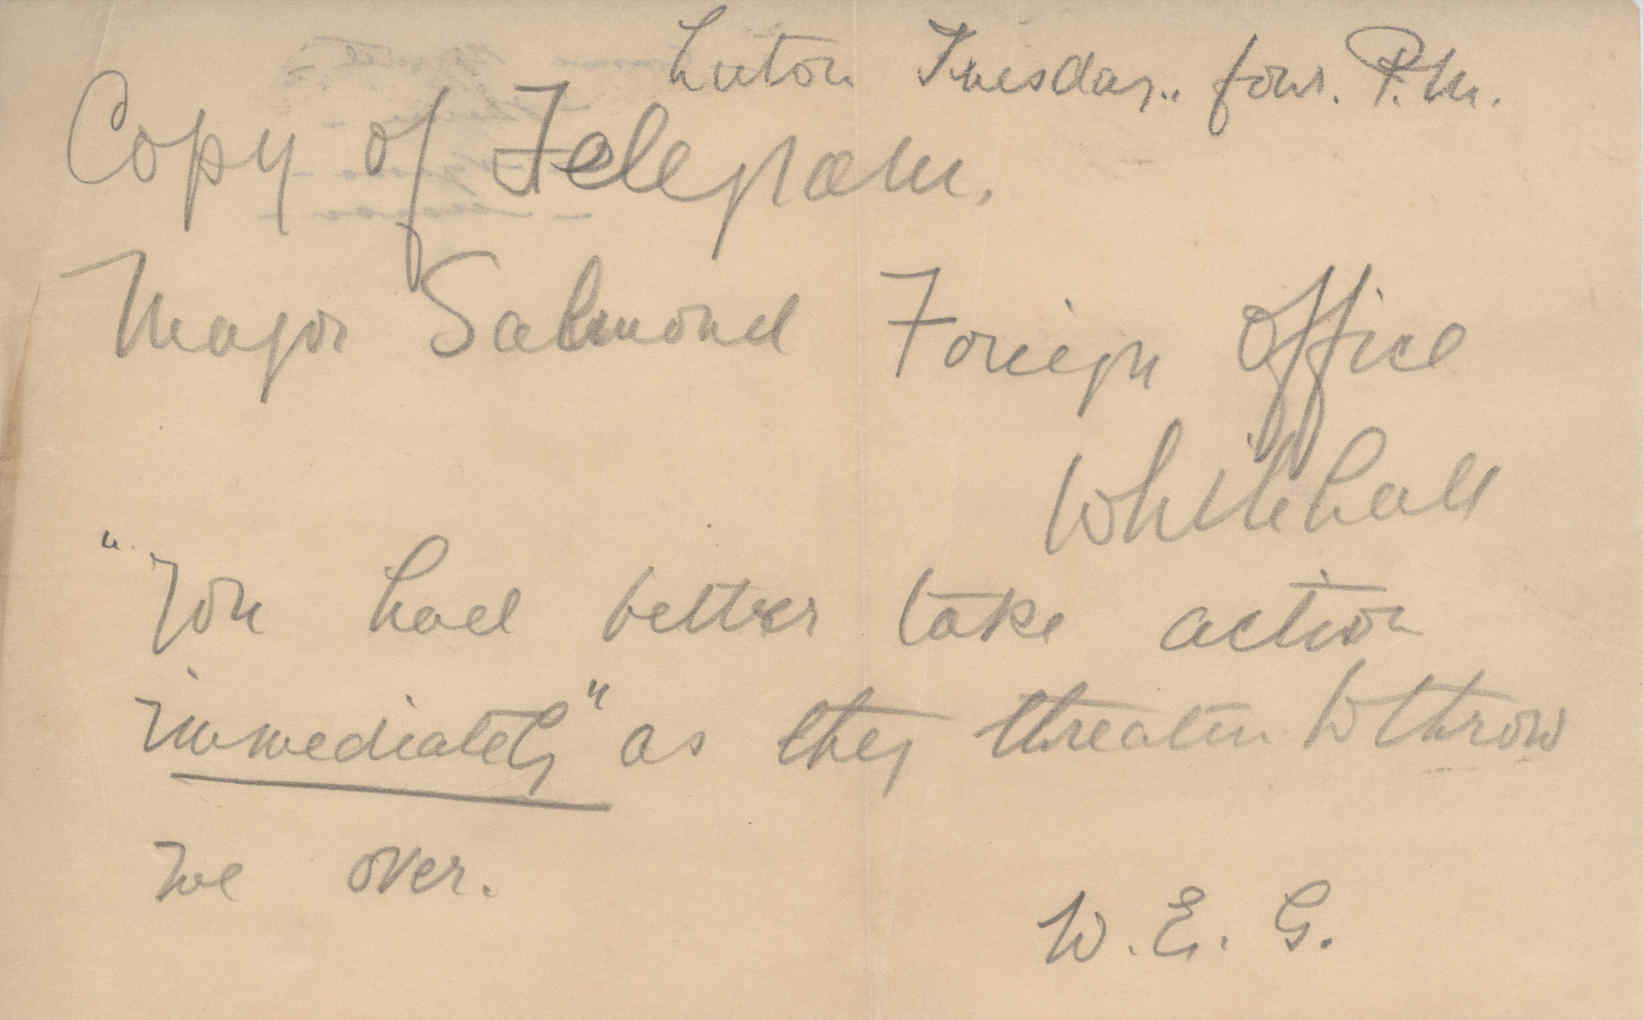 Luton Tuesday.. four. P.M.
Copy of Telegram.
Major Salmond Foreign Office
Whitehall
"You had better take action
immediately" as they threaten to throw
me over.
W. E. G.